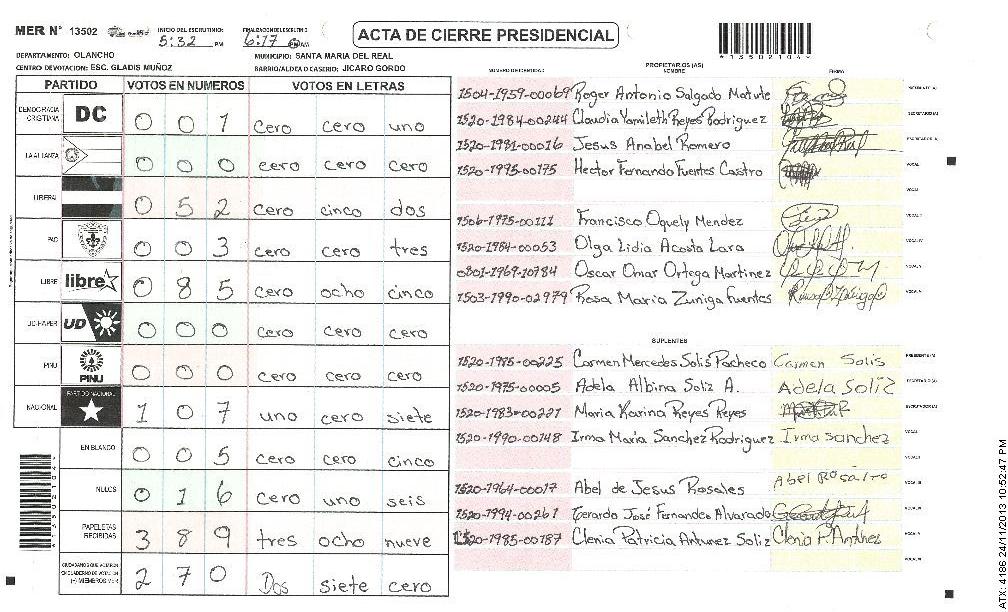 MER N° 13502
INICIO DEL ESCRUTINIO:
5:32 PM
6:17 PM AM
ACTA DE CIERRE PRESIDENCIAL
13502104
DEPARTAMENTO: OLANCHO
MUNICIPIO: SANTA MARIA DEL REAL
CENTRO DE VOTACION: ESC. GLADIS MUÑOZ
BARRIO/ALDEA O CASERIO: JICARO GORDO
PARTIDO VOTOS EN NUMEROS VOTOS EN LETRAS
DEMOCRACIA CRISTIANA DC 0 0 1 cero cero uno
LA ALIANZA 0 0 0 cero cero cero
LIBERAL 0 5 2 cero cinco dos
PAC 0 0 3 cero cero tres
LIBRE libre 0 8 5 cero ocho cinco
UD-FAPER UD 0 0 0 cero cero cero
PINU PINU 0 0 0 cero cero cero
NACIONAL PARTIDO NACIONAL 1 0 7 uno cero siete
EN BLANCO 0 0 5 cero cero cinco
NULOS 0 1 6 cero uno seis
PAPELETAS RECIBIDAS 3 8 9 tres ocho nueve
CIUDADANOS QUE VOTARON
(+) MIEMBROS MER 2 7 0 Dos siete cero
PROPIETARIOS (AS)
NUMERO DE IDENTIDAD NOMBRE FIRMA
1504-1959-00069 Roger Antonio Salgado Matute
1520-1984-00244 Claudia Yamileth Reyes Rodriguez
1520-1981-00016 Jesus Anabel Romero
1520-1995-00175 Hector Fernando Fuentes Castro
VOCAL
1506-1975-00111 Francisco Oquely Mendez
1520-1984-00053 Olga Lidia Acosta Lara
0801-1969-10784 Oscar Omar Ortega Martinez
1503-1990-02979 Rosa Maria Zuniga Fuentes
SUPLENTES
1520-1985-00225 Carmen Mercedes Solis Pacheco Carmen Solis PRESIDENTE (A)
1520-1975-00005 Adela Albina Soliz A. Adela Soliz SECRETARIO (A)
1520-1983-00221 Maria Karina Reyes Reyes ESCRUTADOR (A)
1520-1990-00148 Irma Maria Sanchez Rodriguez Irma Sanchez
1520-1964-00017 Abel de Jesus Rosales Abel Rosales
1520-1994-00261 Gerardo José Fernandes Alvarado
1520-1985-00187 Clenia Patricia Antunez Soliz Clenia P. Antunez
13502104
ATX: 4186 24/11/2013 10:52:47 PM